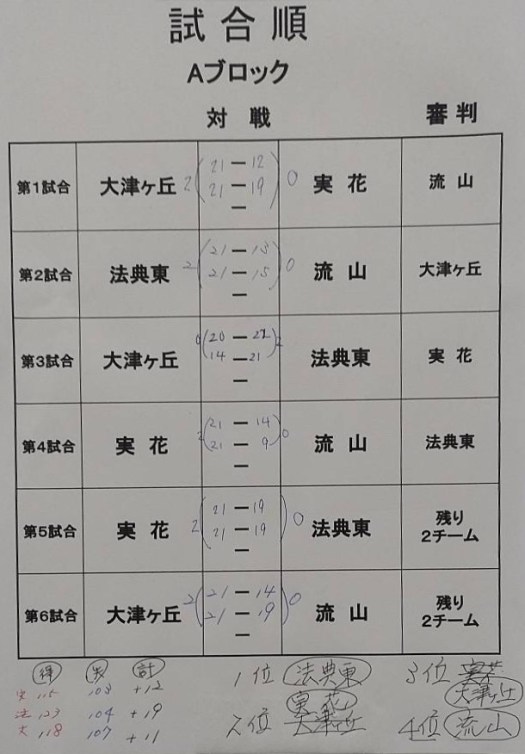 試合順
Aブロック
対戦 審判
第1試合 大津ヶ丘 2 (21 ー 12) 0 実花 流山
21 ー 19
ー
第2試合 法典東 2 (21 ー 15) 0 流山 大津ヶ丘
21 ー 15
ー
第3試合 大津ヶ丘 0 (20 ー 22) 2 法典東 実花
14 ー 21
ー
第4試合 実花 2 (21 ー 14) 0 流山 法典東
21 ー 9
ー
第5試合 実花 2 (21 ー 19) 0 法典東 残り
21 ー 19 2チーム
ー
第6試合 大津ヶ丘 2 (21 ー 14) 0 流山 残り
21 ー 19 2チーム
ー
得 失 計
実 115 103 +12
法 123 104 +19
大 118 107 +11
1位 法典東
2位 実花 大津ヶ丘
3位 実花 大津ヶ丘
4位 流山